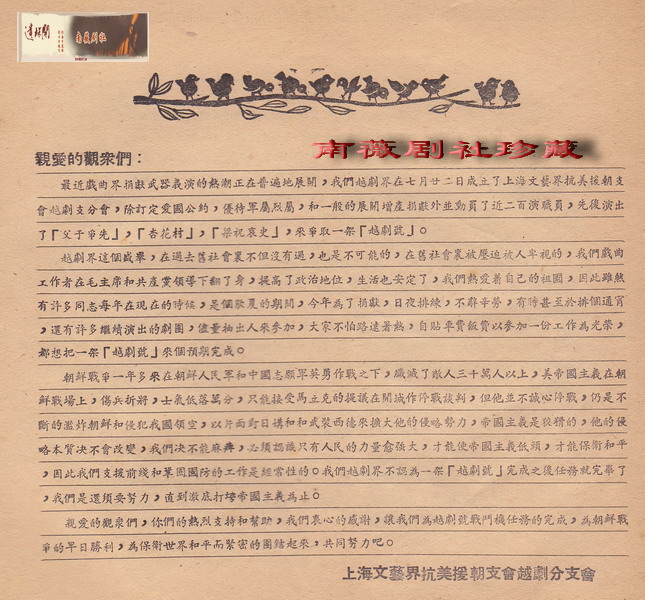 南薇剧社
南薇剧社珍藏
親愛的觀衆們：
最近戲曲界捐獻武器義演的熱潮正在普遍地展開，我們越劇界在七月廿二日成立了上海文藝界抗美援朝支
會越劇支分會，除訂定愛國公約，優待軍屬烈屬，和一般的展開增產捐獻外並動員了近二百演職員，先後演出
了「父子爭先」，「杏花村」，「梁祝哀史」，來爭取一架「越劇號」。
越劇界這個盛舉，在過去舊社會裏不但沒有過，也是不可能的，在舊社會裏被壓迫被人卑視的，我們戲曲
工作者在毛主席和共產黨領導下翻了身，提高了政治地位，生活也安定了，我們熱愛着自己的祖國，因此雖然
有許多同志每年在現在的時候，是個歇夏的期間，今年為了捐獻，日夜排練，不辭辛勞，有時甚至於排個通宵
，還有許多繼續演出的劇團，儘量抽出人來參加，大家不怕路遠暑熱，自貼車費飯費以參加一份工作為光榮，
都想把一架「越劇號」來個預期完成。
朝鮮戰爭一年多來在朝鮮人民軍和中國志願軍英勇作戰之下，殲滅了敵人三十萬人以上，美帝國主義在朝
鮮戰場上，傷兵折將，士氣低落萬分，只能接受馬立克的提議在開城作停戰談判，但他並不誠心停戰，仍是不
斷的濫炸朝鮮和侵犯我國領空，以片面對日媾和和武裝西德來擴大他的侵略努力，帝國主義是狡猾的，他的侵
略本質决不會改變，我們决不能麻痺，必須認識只有人民的力量愈強大，才能使帝國主義低頭，才能保衛和平
，因此我們支援前綫和鞏固國防的工作是經常性的。我們越劇界不認為一架「越劇號」完成之後任務就完畢了
，我們是還須要努力，直到澈底打垮帝國主義為止。
親愛的觀衆們，你們的熱烈支持和幫助，我們衷心的感謝，讓我們為越劇號戰鬥機任務的完成，為朝鮮戰
爭的早日勝利，為保衛世界和平而緊密的團結起來，共同努力吧。
上海文藝界抗美援朝支會越劇分支會